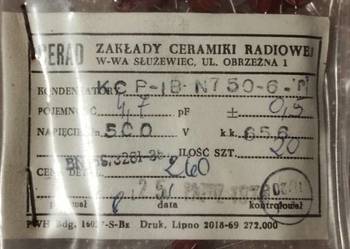 CERAD ZAKŁADY CERAMIKI RADIOWEJ
W-WA SŁUŻEWIEC, UL. OBRZEŻNA 1
KONDENSATORY KCP-IB-N750-6-
POJEMNOŚĆ 4,7 pF ± 0,5
NAPIĘCIE 500 V k.k. 656
ILOŚĆ SZT. 20
CENA DET. 260
data kontrolował
PWH Bdg. Druk. Lipno 2018-69 272.000